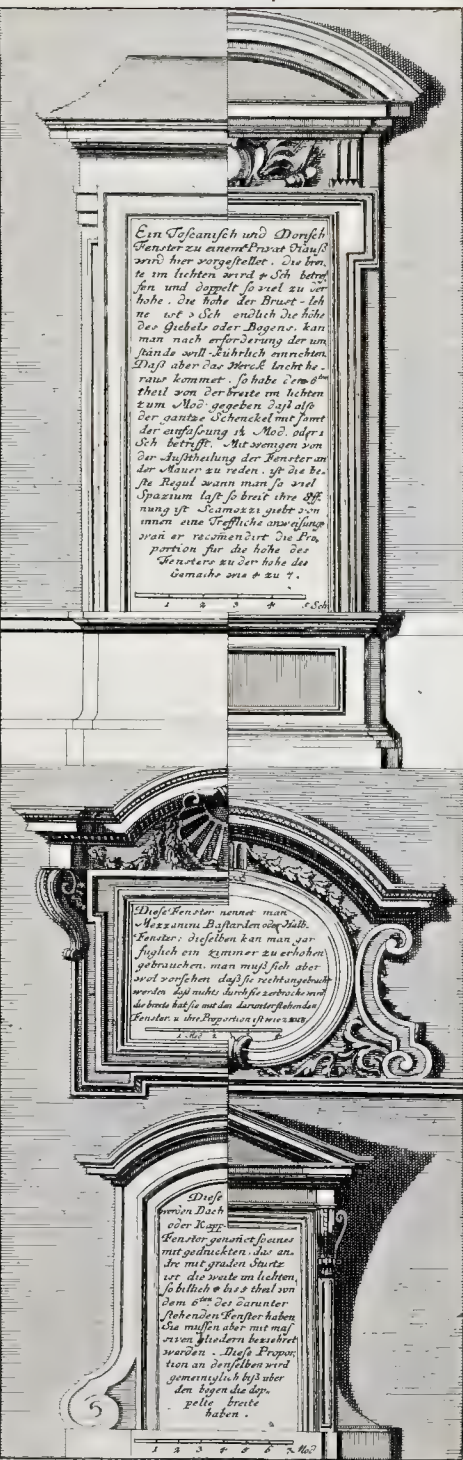 Ein Toscanisch und Dorisch
Fenster zu einem Privat Hauß
wird hier vorgestellet. die brei,
te im lichten wird 4 Sch betref
fen und doppelt so viel zu ver
hohe. die hohe der Brust-leh
ne ist 3 Sch endlich die höhe
des Giebels oder Bogens. kan
man nach erforderung der um
stände will-kührlich einrichten
Daß aber das Werck leicht he-
raus kommet. so habe den 6ten
theil von der breite im lichten
zum Mod. gegeben daß also
der gantze Schenckel mit samt
der einfaßung 1½ Mod. oder 1
Sch betrifft. Mit wenigen von
der Außtheilung der Fenster an
der Mauer zu reden. ist die be-
ste Regul wann man so viel
Spazium last so breit ihre öff.
nung ist Scamozzi giebt von
innen eine Treffliche anweisung.
wan er recom̄endirt die Pro,
portion für die höhe des
Fensters zu der hohe des
Gemachs wie 4 zu 7.
1 2 3 4 5 Sch
Diese Fenster nennet man
Mezzanini Bastarden oder Halb.
Fenster; dieselben kan man gar
fuglich ein zimmer zu erhohen
gebrauchen. man muß sich aber
wol vorsehen daß sie recht angebracht
werden daß nichts durch sie zerbrochē wird
die breite hat sie mit den darunter stehenden
Fenster. u ihre Proportion ist wie 2 zu
1 Mod 2
Diese
werden Dach
oder Kapp
Fenster genen̄et so eines
mit gedruckten, das an.
dre mit graden Sturtz
ist die weite im lichten,
so billich 4 bis 5 theil von
dem 6ten des darunter
stehenden Fenster haben
Sie mussen aber mit maß
siven gliedern beziehret
werden. Diese Propor,
tion an denselben wird
gemeiniglich biß uber
den bogen die dop,
pelte breite
haben.
1 2 3 4 5 6 7 Mod